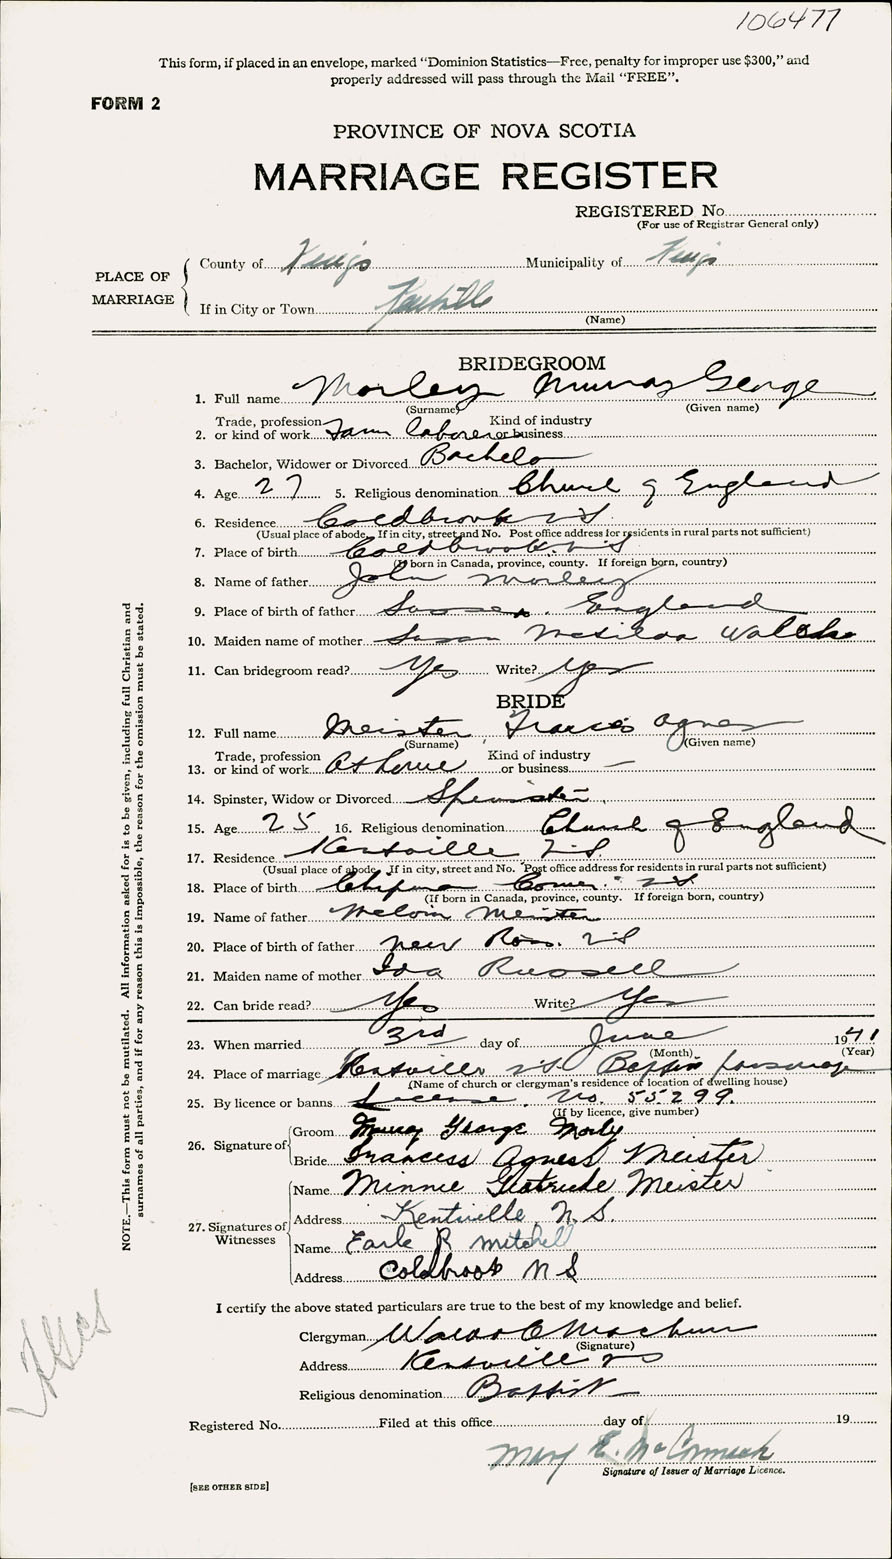 106477
This form, if placed in an envelope, marked “Dominion Statistics—Free, penalty for improper use $300,” and
properly addressed will pass through the Mail “FREE”.
FORM 2
PROVINCE OF NOVA SCOTIA
MARRIAGE REGISTER
REGISTERED No.
(For use of Registrar General only)
PLACE OF MARRIAGE
County of Kings Municipality of Kings
If in City or Town Kentville
(Name)
BRIDEGROOM
1. Full name Morley Murray George
(Surname) (Given name)
Trade, profession Kind of industry
2. or kind of work Farm laborer or business
3. Bachelor, Widower or Divorced Bachelor
4. Age 27 5. Religious denomination Church of England
6. Residence Coldbrook NS
(Usual place of abode. If in city, street and No. Post office address for residents in rural parts not sufficient)
7. Place of birth Coldbrook NS
(If born in Canada, province, county. If foreign born, country)
8. Name of father John Morley
9. Place of birth of father Sussex, England
10. Maiden name of mother Susan Matilda
11. Can bridegroom read? Yes Write? Yes
BRIDE
12. Full name Meister Frances Agnes
(Surname) (Given name)
Trade, profession Kind of industry
13. or kind of work At home or business —
14. Spinster, Widow or Divorced Spinster
15. Age 25 16. Religious denomination Church of England
17. Residence Kentville NS
(Usual place of abode. If in city, street and No. Post office address for residents in rural parts not sufficient)
18. Place of birth Chipman Corner NS
(If born in Canada, province, county. If foreign born, country)
19. Name of father Melvin Meister
20. Place of birth of father New Ross. NS
21. Maiden name of mother Ida Russell
22. Can bride read? Yes Write? Yes
23. When married 3rd day of June 1941
(Month) (Year)
24. Place of marriage Kentville NS. Baptist parsonage
(Name of church or clergyman's residence or location of dwelling house)
25. By licence or banns License. No. 55299.
(If by licence, give number)
26. Signature of
Groom Murray George Morly
Bride Francess Agness Meister
27. Signatures of Witnesses
Name Minnie Gertrude Meister
Address Kentville N.S.
Name Earle R Mitchell
Address Coldbrook N S
I certify the above stated particulars are true to the best of my knowledge and belief.
Clergyman Waldo C Machum
(Signature)
Address Kentville NS
Religious denomination Baptist
Registered No. Filed at this office day of 19
Mary E. McCormack
Signature of Issuer of Marriage Licence.
[SEE OTHER SIDE]
NOTE.—This form must not be mutilated. All information asked for is to be given, including full Christian and
surnames of all parties, and if for any reason this is impossible, the reason for the omission must be stated.